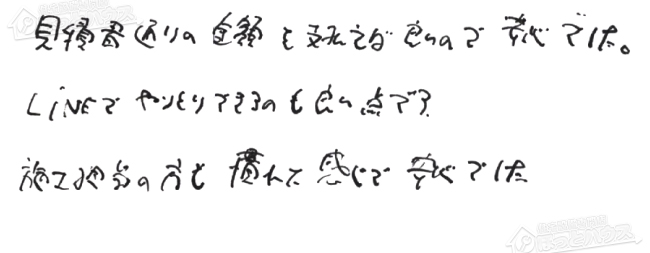 見積書通りの金額を支払えば良いので安心でした。
LiNEでやりとりできるのも良い点です
施工担当の方も慣れた感じで安心でした